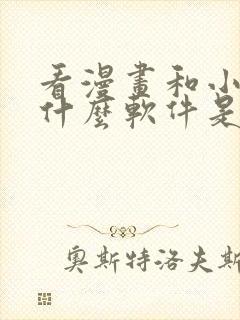 看漫畫和小
什麼軟件是
奧斯特洛夫斯